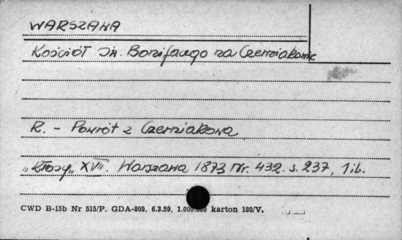 WARSZAWA
Kościół Św. Bonifacego na Czerniakowie
R. - Powrót z Czerniakowa
"Kłosy" XVI. Warszawa 1873 Nr. 432. s. 237, 1 il.
CWD B-15b Nr 515/P. GDA-869. 6.3.59, 1.000.000 karton 180/V.